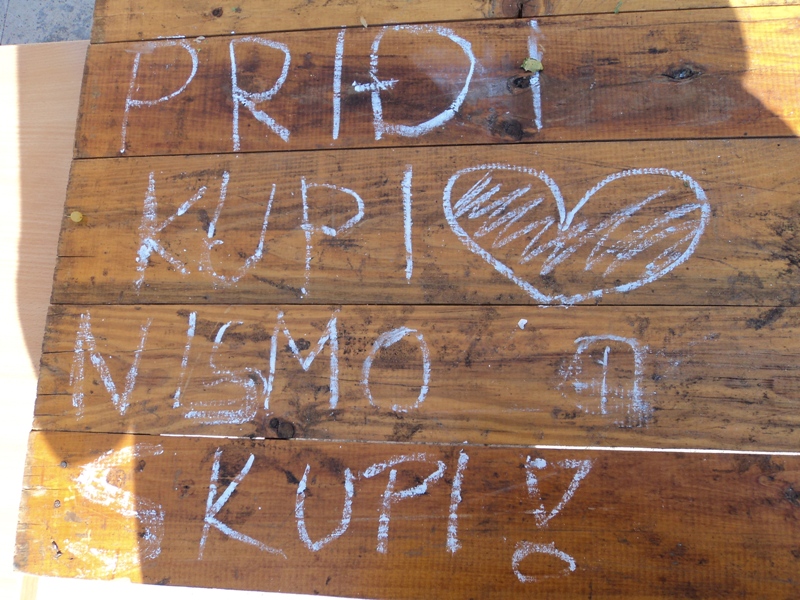 PRIĐI
KUPI
NISMO
SKUPI!